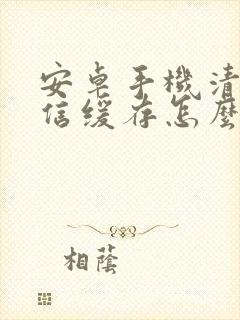 安卓手機清
信緩存怎麼
相蔭